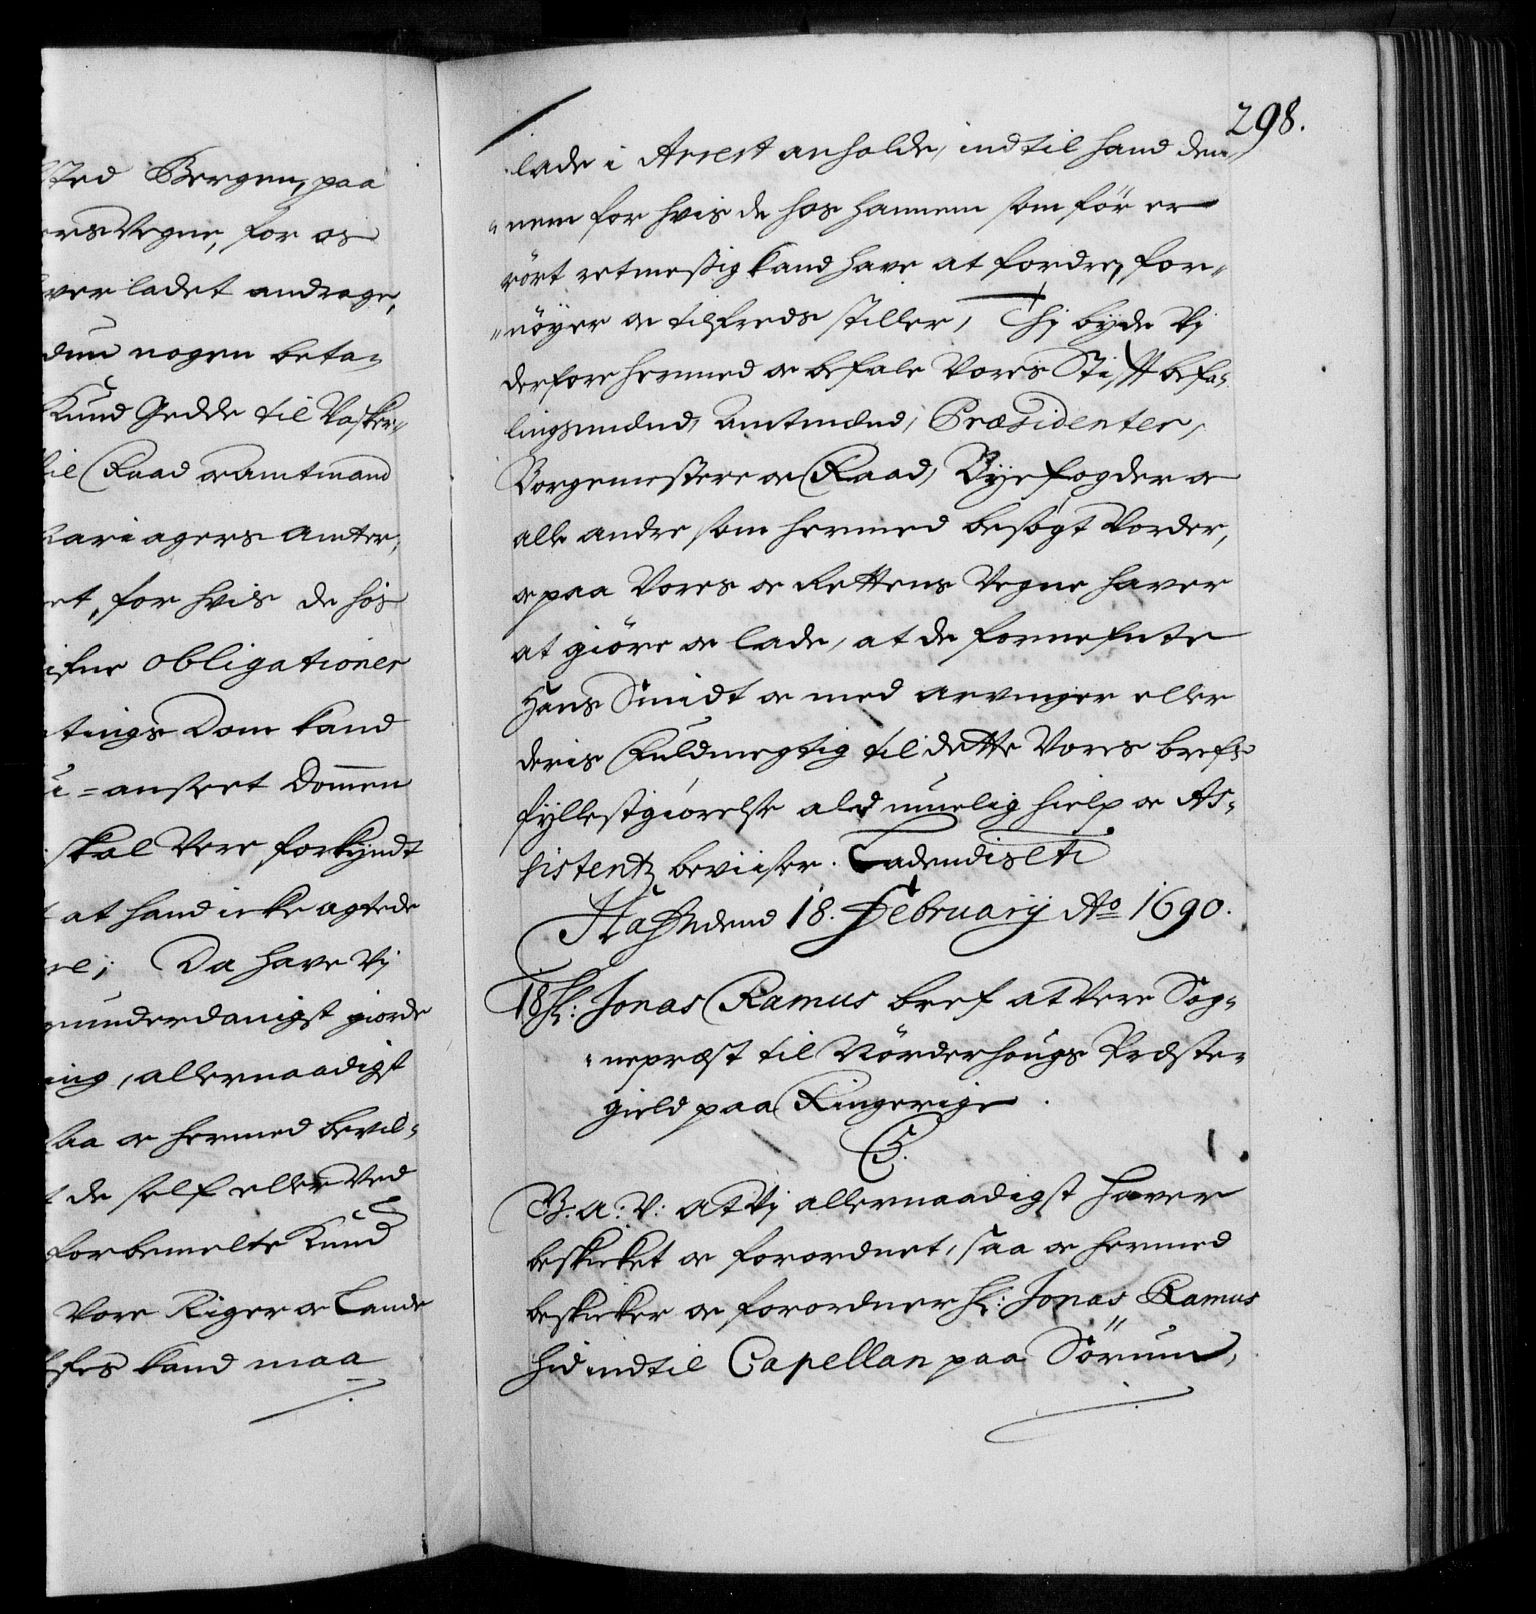 sted Bergen, paa
ers Vegne, for os
ver ladet andrage,
dun nogen beta-
Knud Gedde til Vasker-
til Raad oc Amtmand
Mariagers Amter,
et, for hvis de hos
ifne obligationer
tings Dom kand
u-anseet Dommen
skal Vere forkyndt
at hand icke agtede
re; Da have Vj
underdanigst giorde
ing, allernaadigst
saa oc hermed bevil-
t de self eller Ved
forbemelte Knud
Vore Riger oc Lande
fes kand maa
298.
lade i Arrest anholde, indtil hand den-
nem for hvis de hos hannem som før er
rørt retmessig kand have at fordre, for-
nøyer oc tilfreds stiller, Thj byde Vj
derfore hermed oc befale Vores Stiftbefa-
lingsmænd, Amtmænd, Præsidenter,
Borgemestere oc Raad, Byefogder oc
alle andre som hermed besøgt Vorder,
oc paa Vores oc Rettens Vegne haver
at giøre oc lade, at de fornefnte
Hans Smidt oc med arvinger eller
deris Fuldmegtig til dette Vores brefs
fyllestgiørelse ald muelig hielp oc As-
sistentz beviiser. Ladendis etc
Hafn dend 18. February Ao 1690.
18 Hr: Jonas Ramus bref at Vere Sog-
nepræst til Nörderhougs Præste-
gield paa Ringerige.
C5.
G. a: V: at Vj allernaadigst haver
beskicket oc forordnet, saa oc hermed
beskicker oc forordner Hr: Jonas Ramus
hid indtil Capellan paa Sörum,